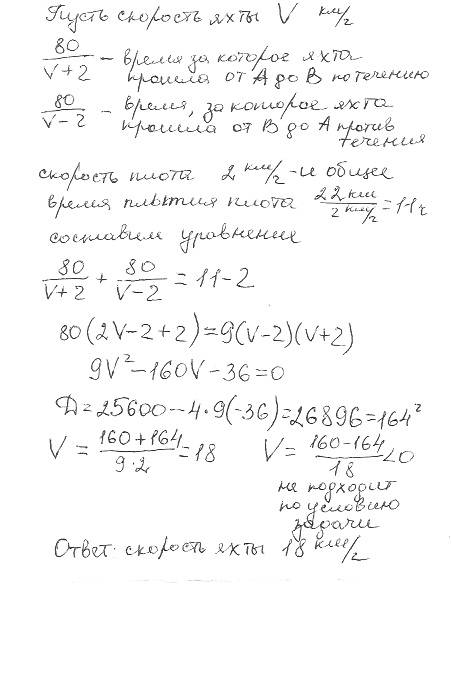 Пусть скорость яхты V км/ч
80/(V+2) – время за которое яхта
прошла от A до B по течению
80/(V-2) – время, за которое яхта
прошла от B до A против
течения
скорость плота 2 км/ч – и общее
время плытия плота 22км/2км/ч = 11ч
составим уравнение
80/(V+2) + 80/(V-2) = 11-2
80(2V-2+2)=9(V-2)(V+2)
9V²-160V-36=0
Д=25600-4·9(-36)=26896=164²
V = (160+164)/(9·2) = 18 V = (160-164)/18 <0
не подходит
по условию
задачи
Ответ. скорость яхты 18 км/ч